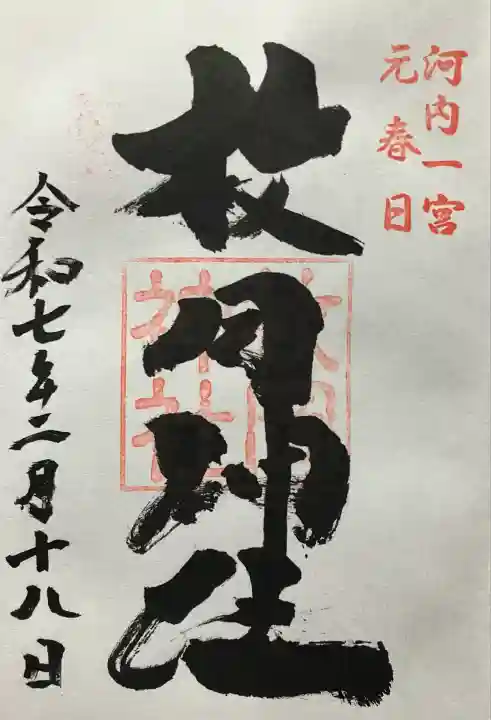 河内一宮
元春日
枚岡神社
枚岡
神社
令和七年二月十八日